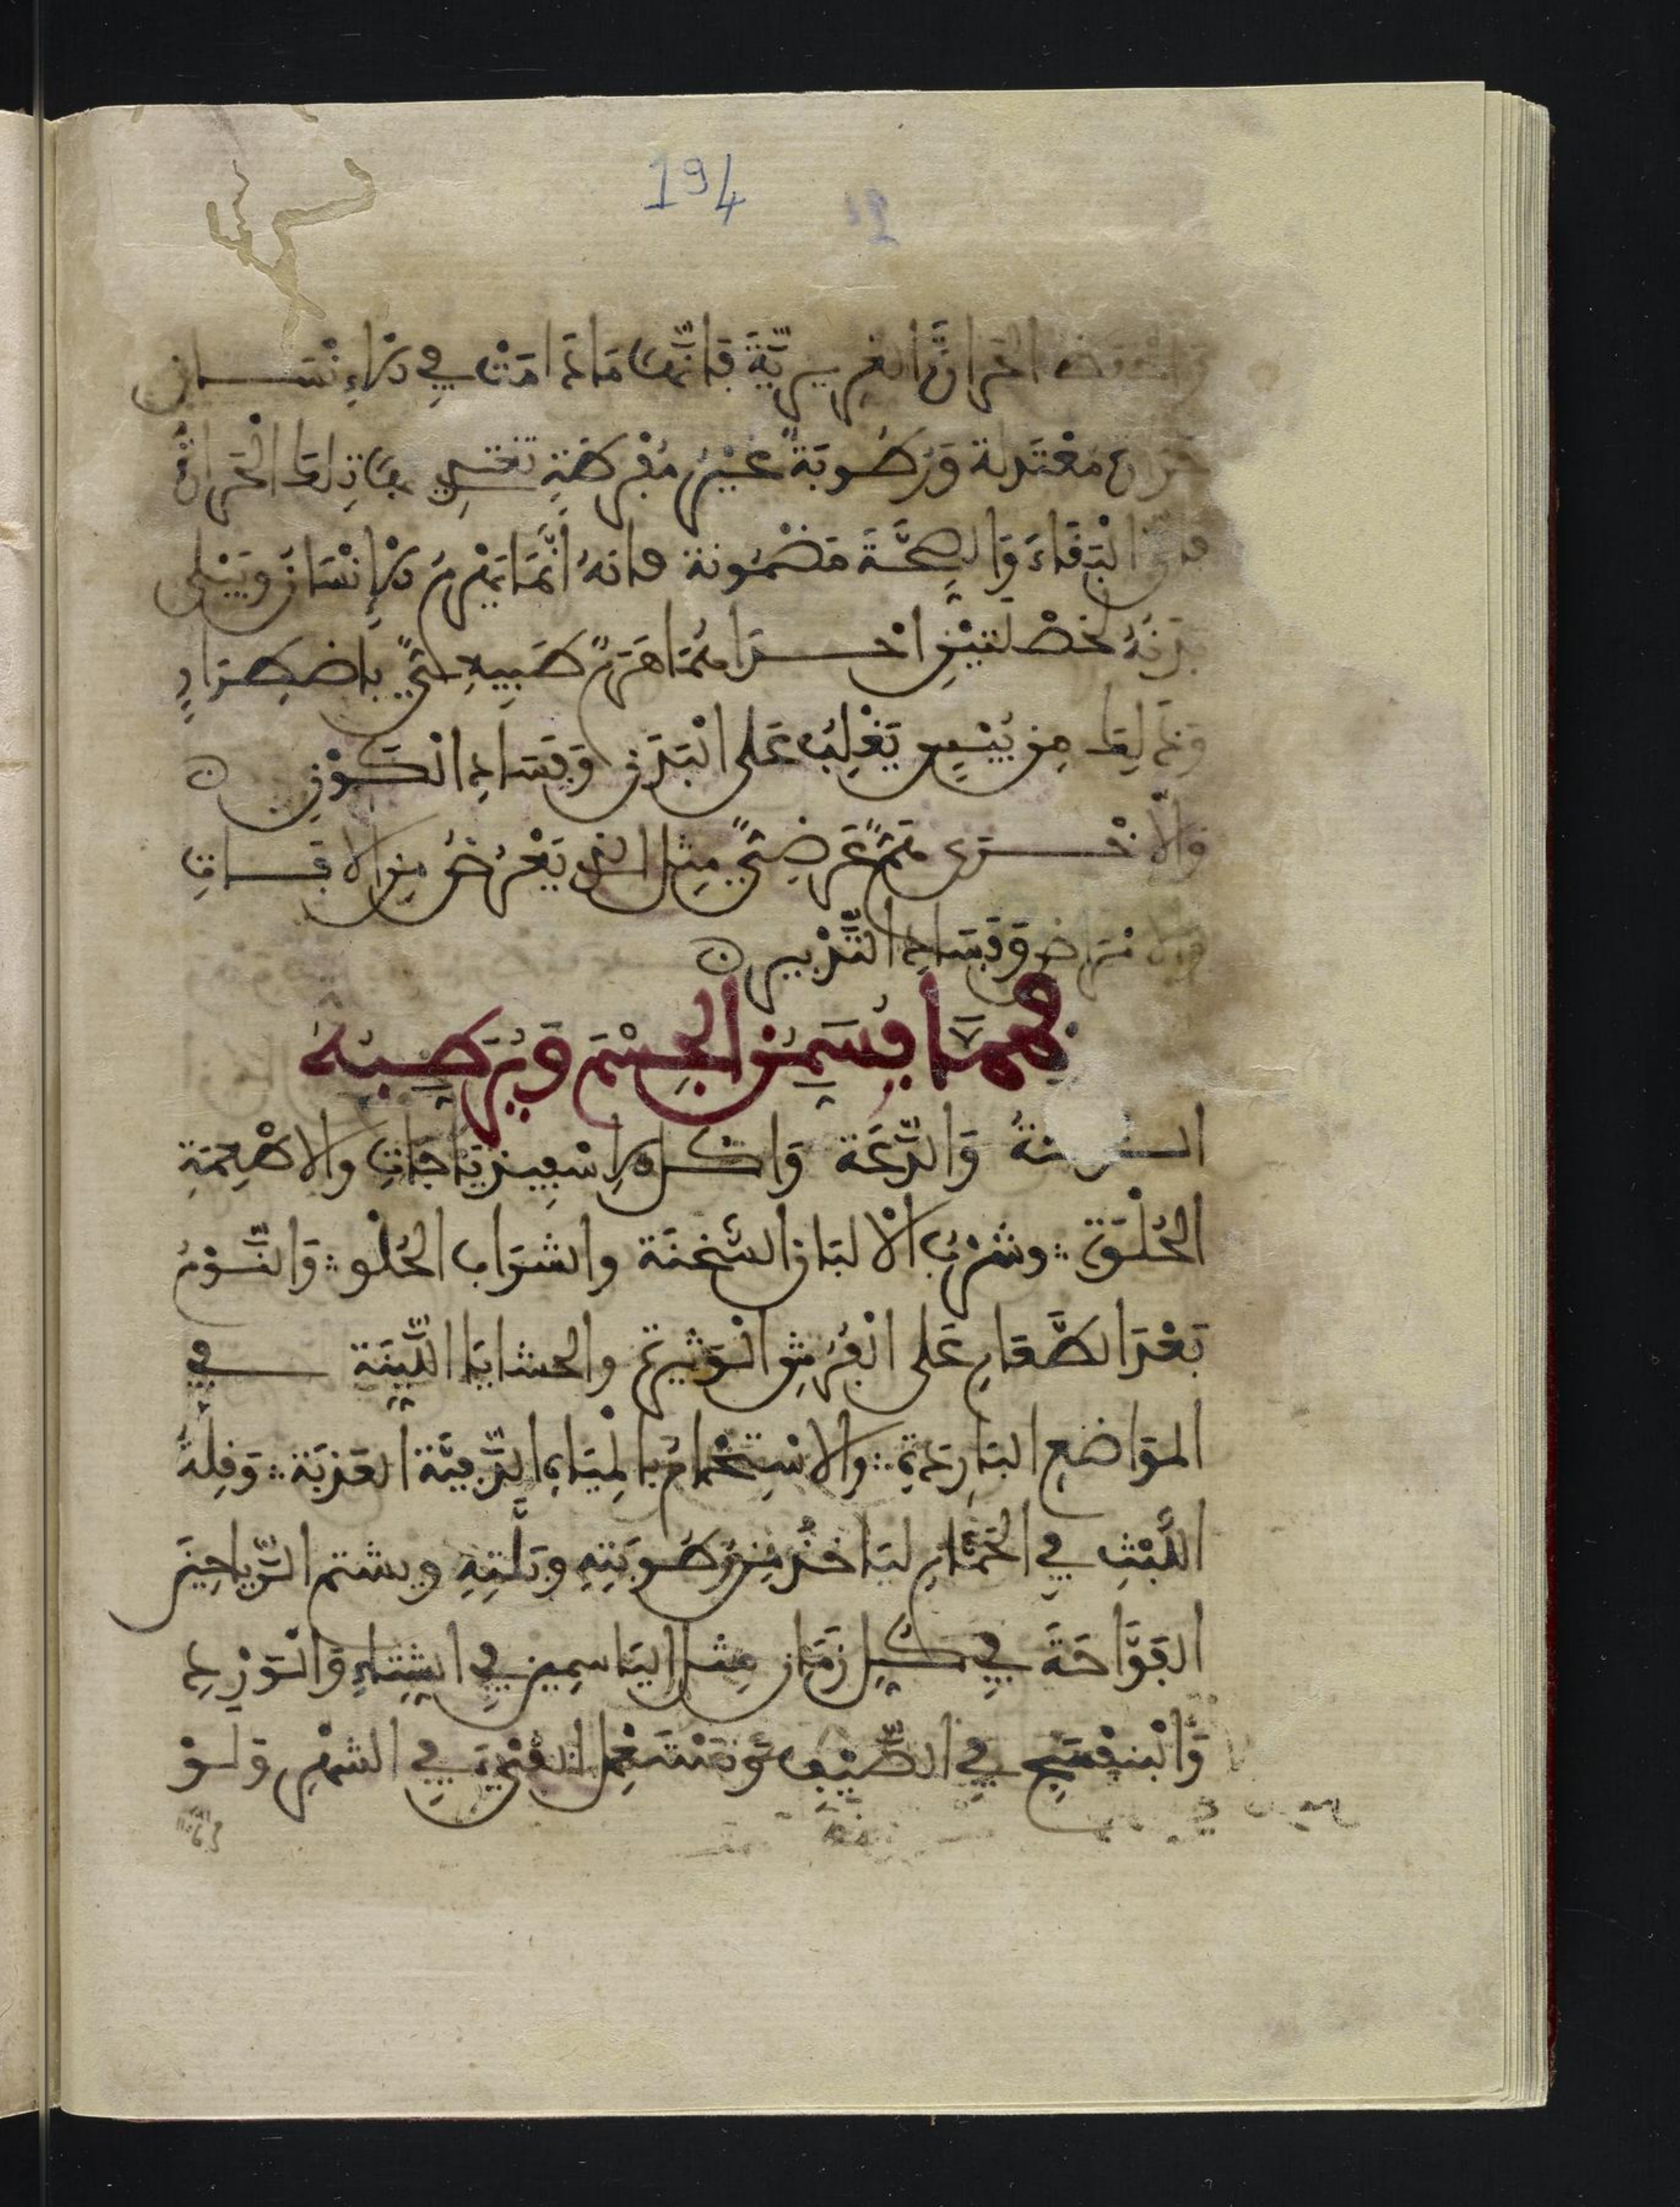 194
الحرارة الغريزيّة فإنّها ما دامت في الإنسان
حرارة معتدلة ورطوبة غير مفرطة تغتذي بها تلك الحرارة
البقاء والصحّة مضمونة وانه انّما يهرم الإنسان ويبلى
بدنه لخصلتين احداهما هرم طبيعي باضطرار
وذلك من يبس يغلب على البدن وفساد الكون
والاخرى عرضي مثل الذي يعرض من الآفات
والامراض وفساد التدبير
فممّا يسمن الجسم ويرطبه
والدعة واكل الاسفيذباجات والاطعمة
الحلوة وشرب الالبان السخنة والشراب الحلو والنوم
بعد الطعام على الفرش الوثيرة والحشايا اللّيّنة في
المواضع الباردة والاستحمام بالمياه العذبة وقلة
اللبث في الحمّام ليا خذ من رطوبته وبلّته ويشتم الرياحين
الفوّاحة في كل زمان مثل الياسمين في الشتاء والورد
والبنفسج في الصّيف وتستعمل القيء في الشهر ولو